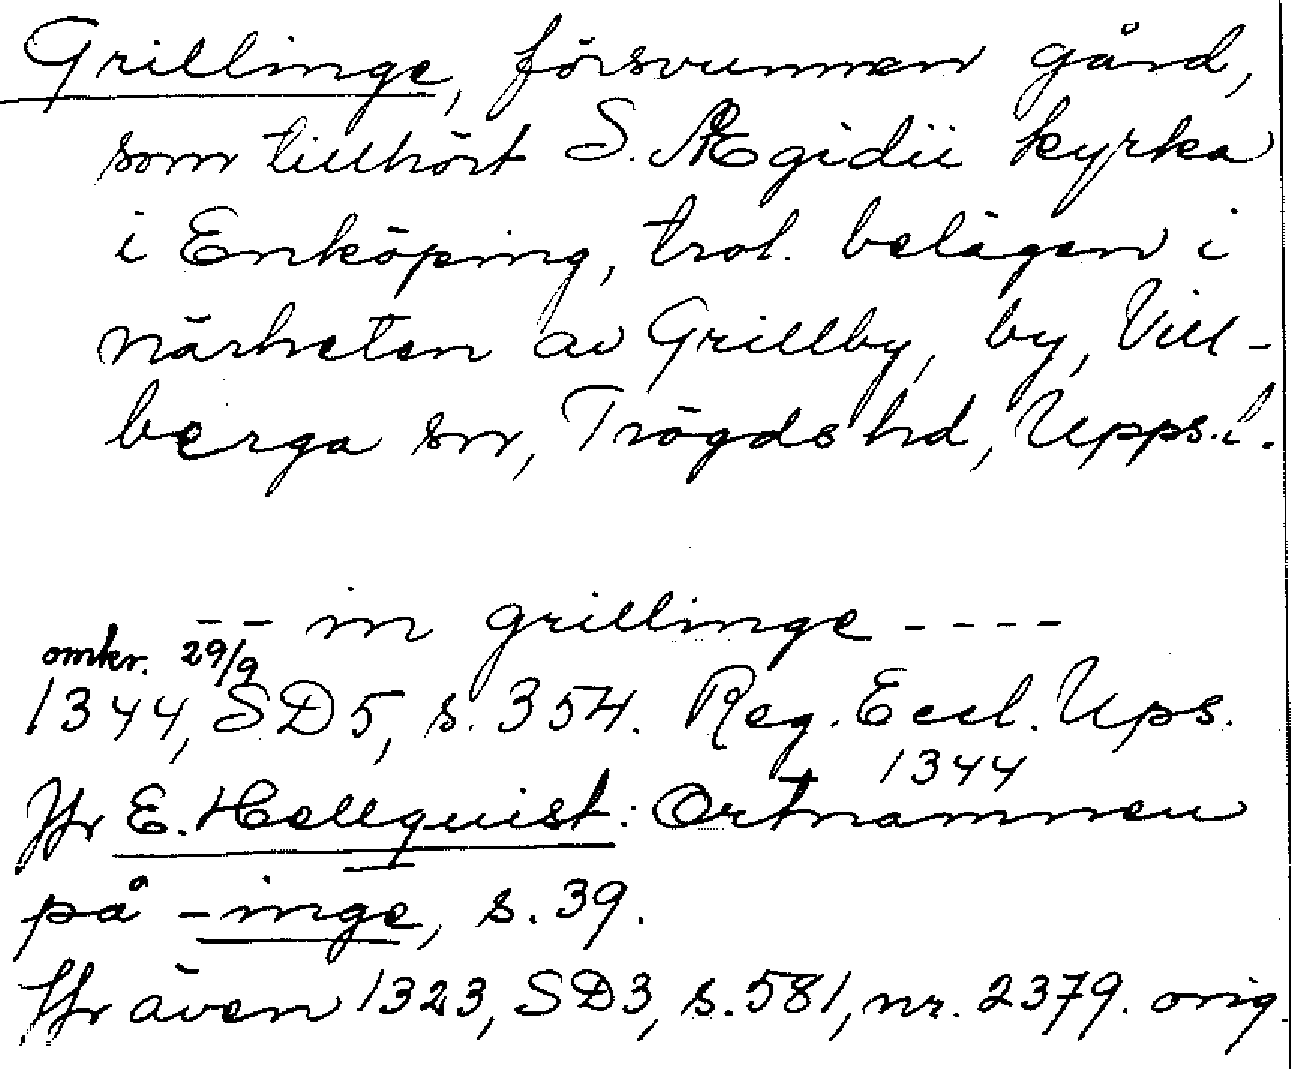 Grillinge, försvunnen gård,
som tillhört S. Ægidii kyrka
i Enköping, trol. belägen i
närheten av Grillby, by, Vill-
berga sn, Trögds hd, Upps. l.
-- in grillinge ----
omkr. 29/9
1344, SD5, s. 354. Reg. Eccl. Ups.
1344
Jfr E. Hellquist: Ortnamnen
på -inge, s. 39.
Jfr även 1323, SD3, s. 581, nr. 2379. orig.